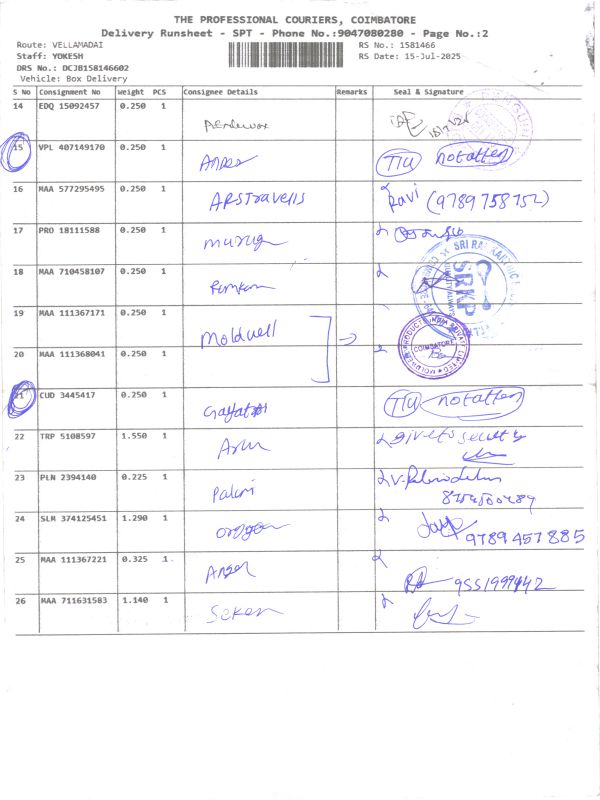 THE PROFESSIONAL COURIERS, COIMBATORE
Delivery Runsheet - SPT - Phone No.:9047080280 - Page No.:2
Route: VELLAMADAI
Staff: YOKESH
DRS No.: DCJB158146602
Vehicle: Box Delivery
RS No.: 1581466
RS Date: 15-Jul-2025
S No Consignment No Weight PCS Consignee Details Remarks Seal & Signature
14 EDQ 15092457 0.250 1
15 VPL 407149170 0.250 1 TIU not atten
16 MAA 577295495 0.250 1 ARS travells Ravi (9789758752)
17 PRO 18111588 0.250 1 murug
18 MAA 710458107 0.250 1
SRKP
19 MAA 111367171 0.250 1 Moldwell
COIMBATORE
20 MAA 111368041 0.250 1
21 CUD 3445417 0.250 1 Gayatri TIU not atten
22 TRP 5108597 1.550 1 Arun
23 PLN 2394140 0.225 1 Palani
24 SLM 374125451 1.290 1 9789457885
25 MAA 111367221 0.325 1
26 MAA 711631583 1.140 1 Seken